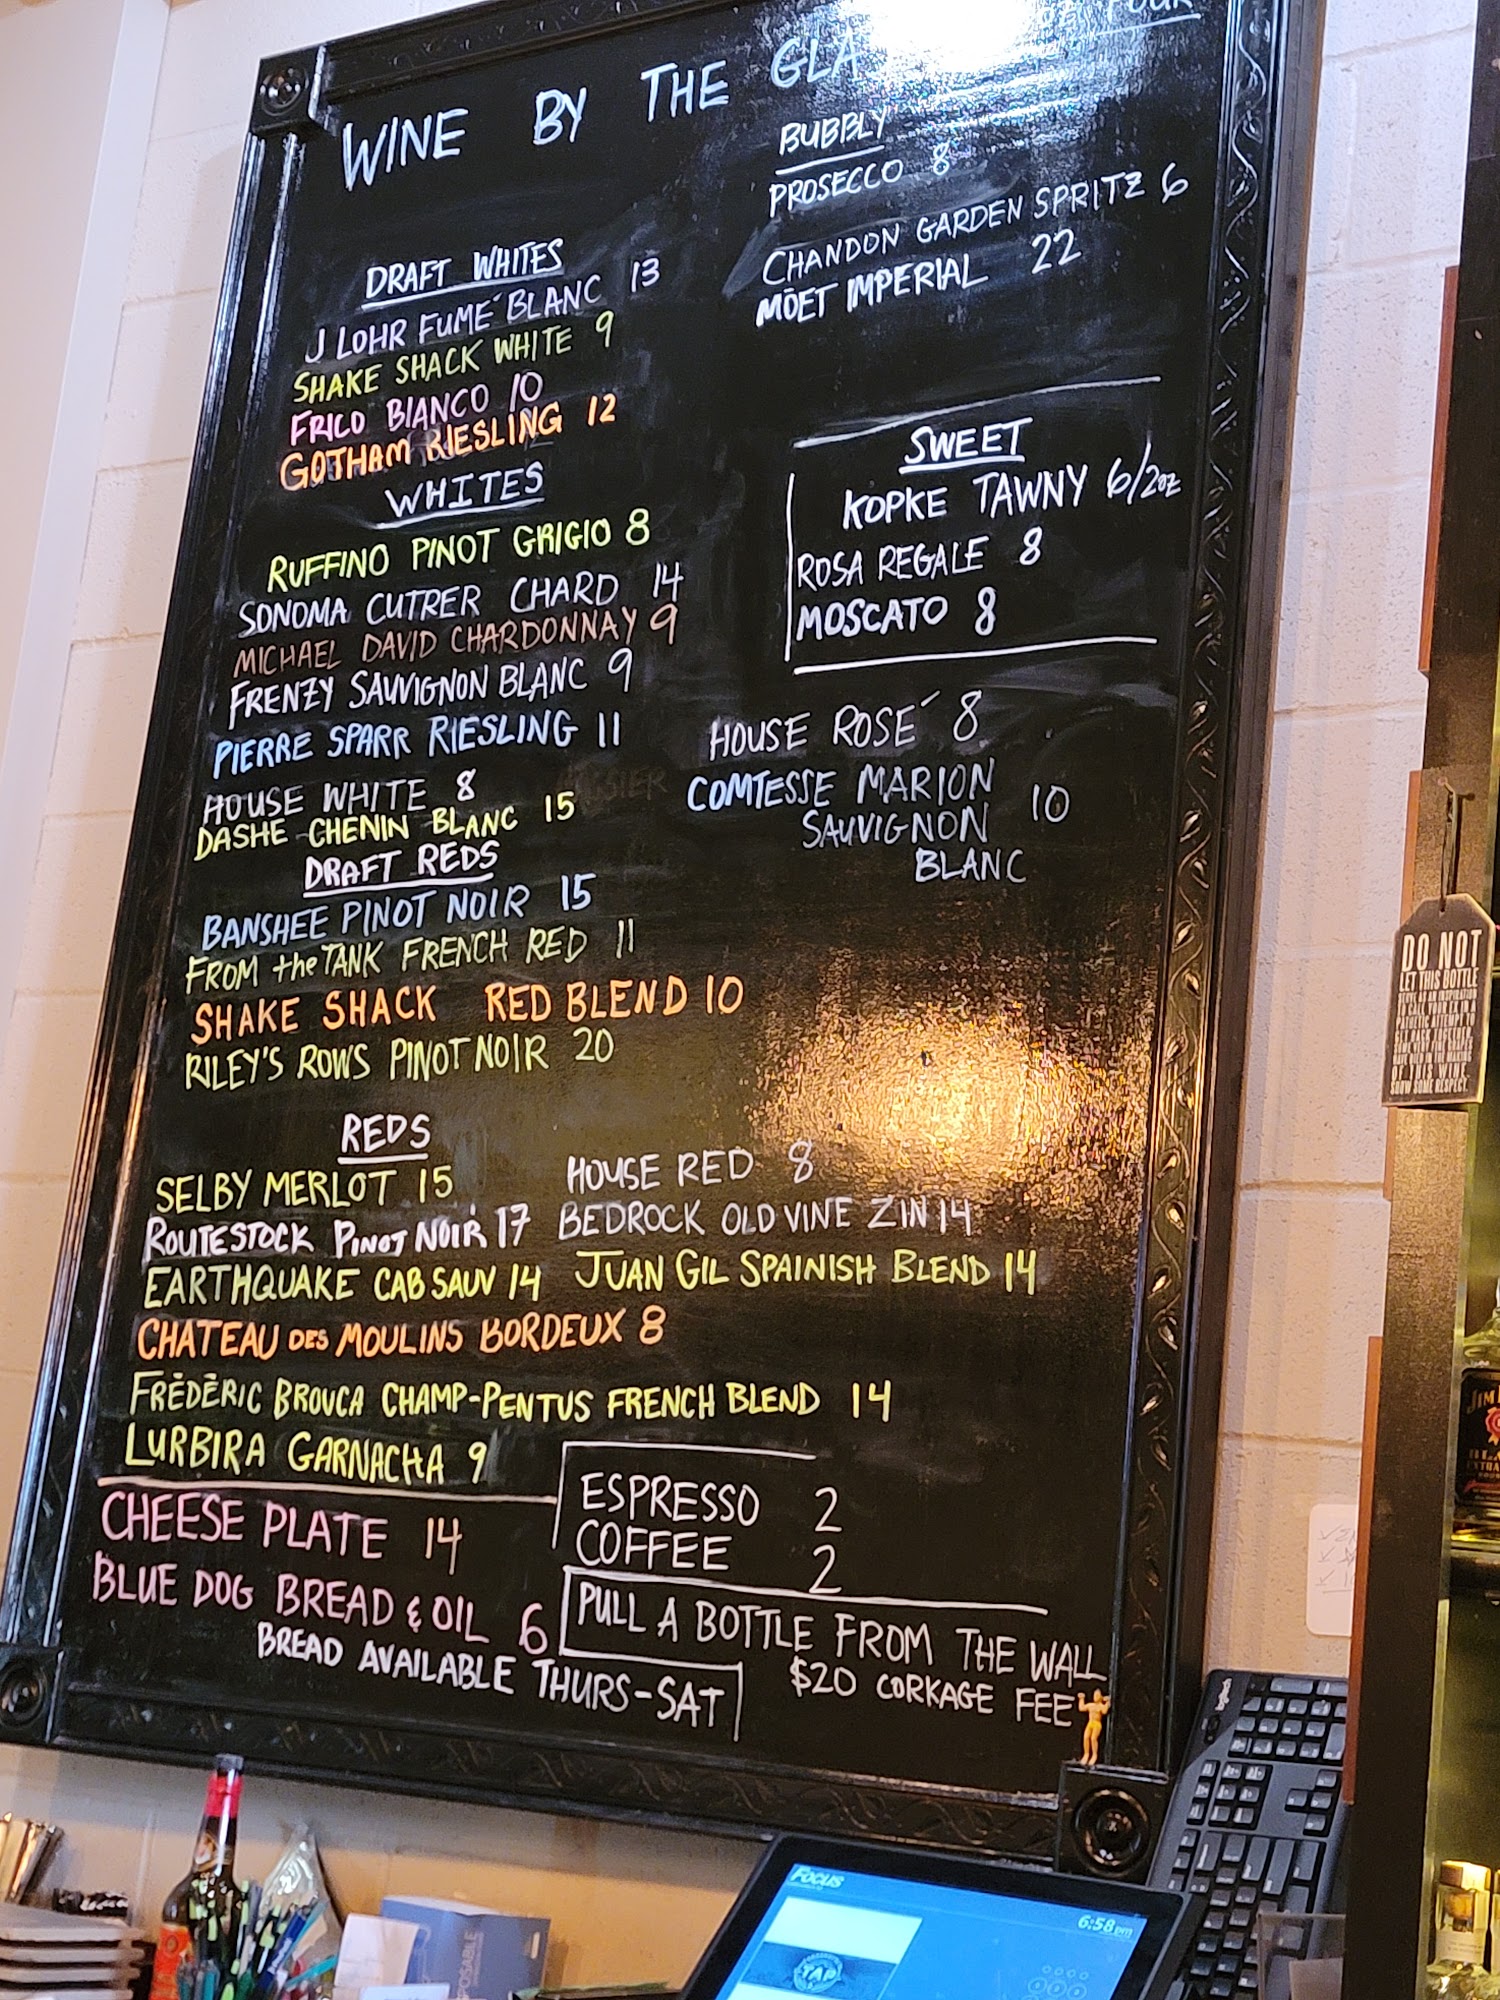 WINE BY THE GLA
FOUR
BUBBLY
PROSECCO 8
CHANDON GARDEN SPRITZ 6
MOËT IMPERIAL 22
DRAFT WHITES
J LOHR FUMÉ BLANC 13
SHAKE SHACK WHITE 9
FRICO BIANCO 10
GOTHAM RIESLING 12
WHITES
RUFFINO PINOT GRIGIO 8
SONOMA CUTRER CHARD 14
MICHAEL DAVID CHARDONNAY 9
FRENZY SAUVIGNON BLANC 9
PIERRE SPARR RIESLING 11
HOUSE WHITE 8
DASHE CHENIN BLANC 15
SWEET
KOPKE TAWNY 6/2oz
ROSA REGALE 8
MOSCATO 8
HOUSE ROSÉ 8
COMTESSE MARION
SAUVIGNON 10
BLANC
DRAFT REDS
BANSHEE PINOT NOIR 15
FROM the TANK FRENCH RED 11
SHAKE SHACK RED BLEND 10
RILEY'S ROWS PINOT NOIR 20
REDS
SELBY MERLOT 15 HOUSE RED 8
ROUTESTOCK PINOT NOIR 17 BEDROCK OLD VINE ZIN 14
EARTHQUAKE CAB SAUV 14 JUAN GIL SPAINISH BLEND 14
CHATEAU DES MOULINS BORDEUX 8
FRÉDÉRIC BROUCA CHAMP-PENTUS FRENCH BLEND 14
LURBIRA GARNACHA 9
CHEESE PLATE 14
BLUE DOG BREAD & OIL 6
BREAD AVAILABLE THURS-SAT
ESPRESSO 2
COFFEE 2
PULL A BOTTLE FROM THE WALL
$20 CORKAGE FEE
DO NOT
LET THIS BOTTLE
OF THIS WINE
SHOW SOME RESPECT.
JIM
FOCUS
6:58 pm
TAP
logitech